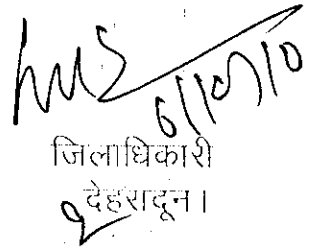 6/10/10
जिलाधिकारी
देहरादून।